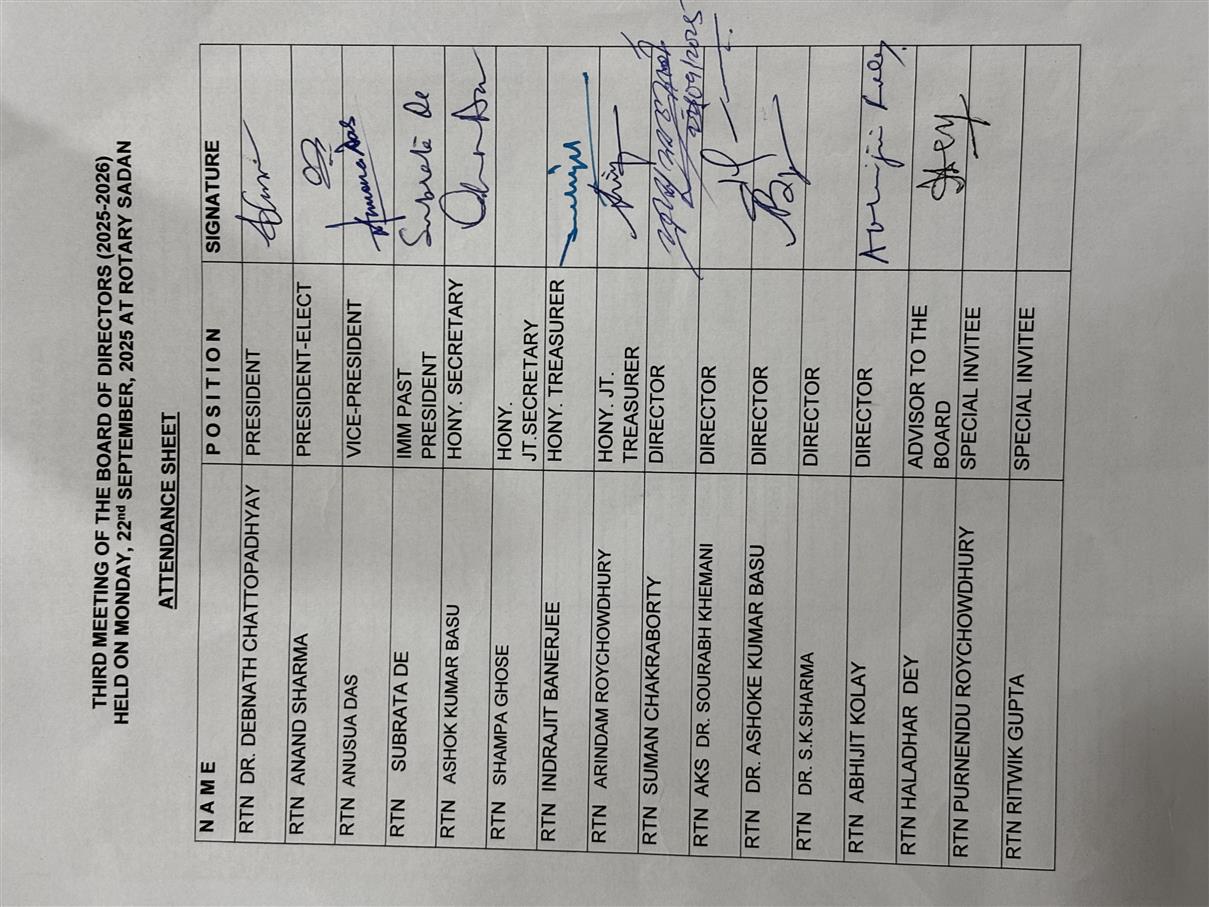 THIRD MEETING OF THE BOARD OF DIRECTORS (2025-2026)
HELD ON MONDAY, 22nd SEPTEMBER, 2025 AT ROTARY SADAN
ATTENDANCE SHEET
N A M E P O S I T I O N SIGNATURE
RTN DR. DEBNATH CHATTOPADHYAY PRESIDENT
RTN ANAND SHARMA PRESIDENT-ELECT
RTN ANUSUA DAS VICE-PRESIDENT Anusua Das
RTN SUBRATA DE IMM PAST PRESIDENT Subrata De
RTN ASHOK KUMAR BASU HONY. SECRETARY
RTN SHAMPA GHOSE HONY. JT.SECRETARY
RTN INDRAJIT BANERJEE HONY. TREASURER
RTN ARINDAM ROYCHOWDHURY HONY. JT. TREASURER
RTN SUMAN CHAKRABORTY DIRECTOR
RTN AKS DR. SOURABH KHEMANI DIRECTOR
RTN DR. ASHOKE KUMAR BASU DIRECTOR
RTN DR. S.K.SHARMA DIRECTOR
RTN ABHIJIT KOLAY DIRECTOR
RTN HALADHAR DEY ADVISOR TO THE BOARD
RTN PURNENDU ROYCHOWDHURY SPECIAL INVITEE
RTN RITWIK GUPTA SPECIAL INVITEE